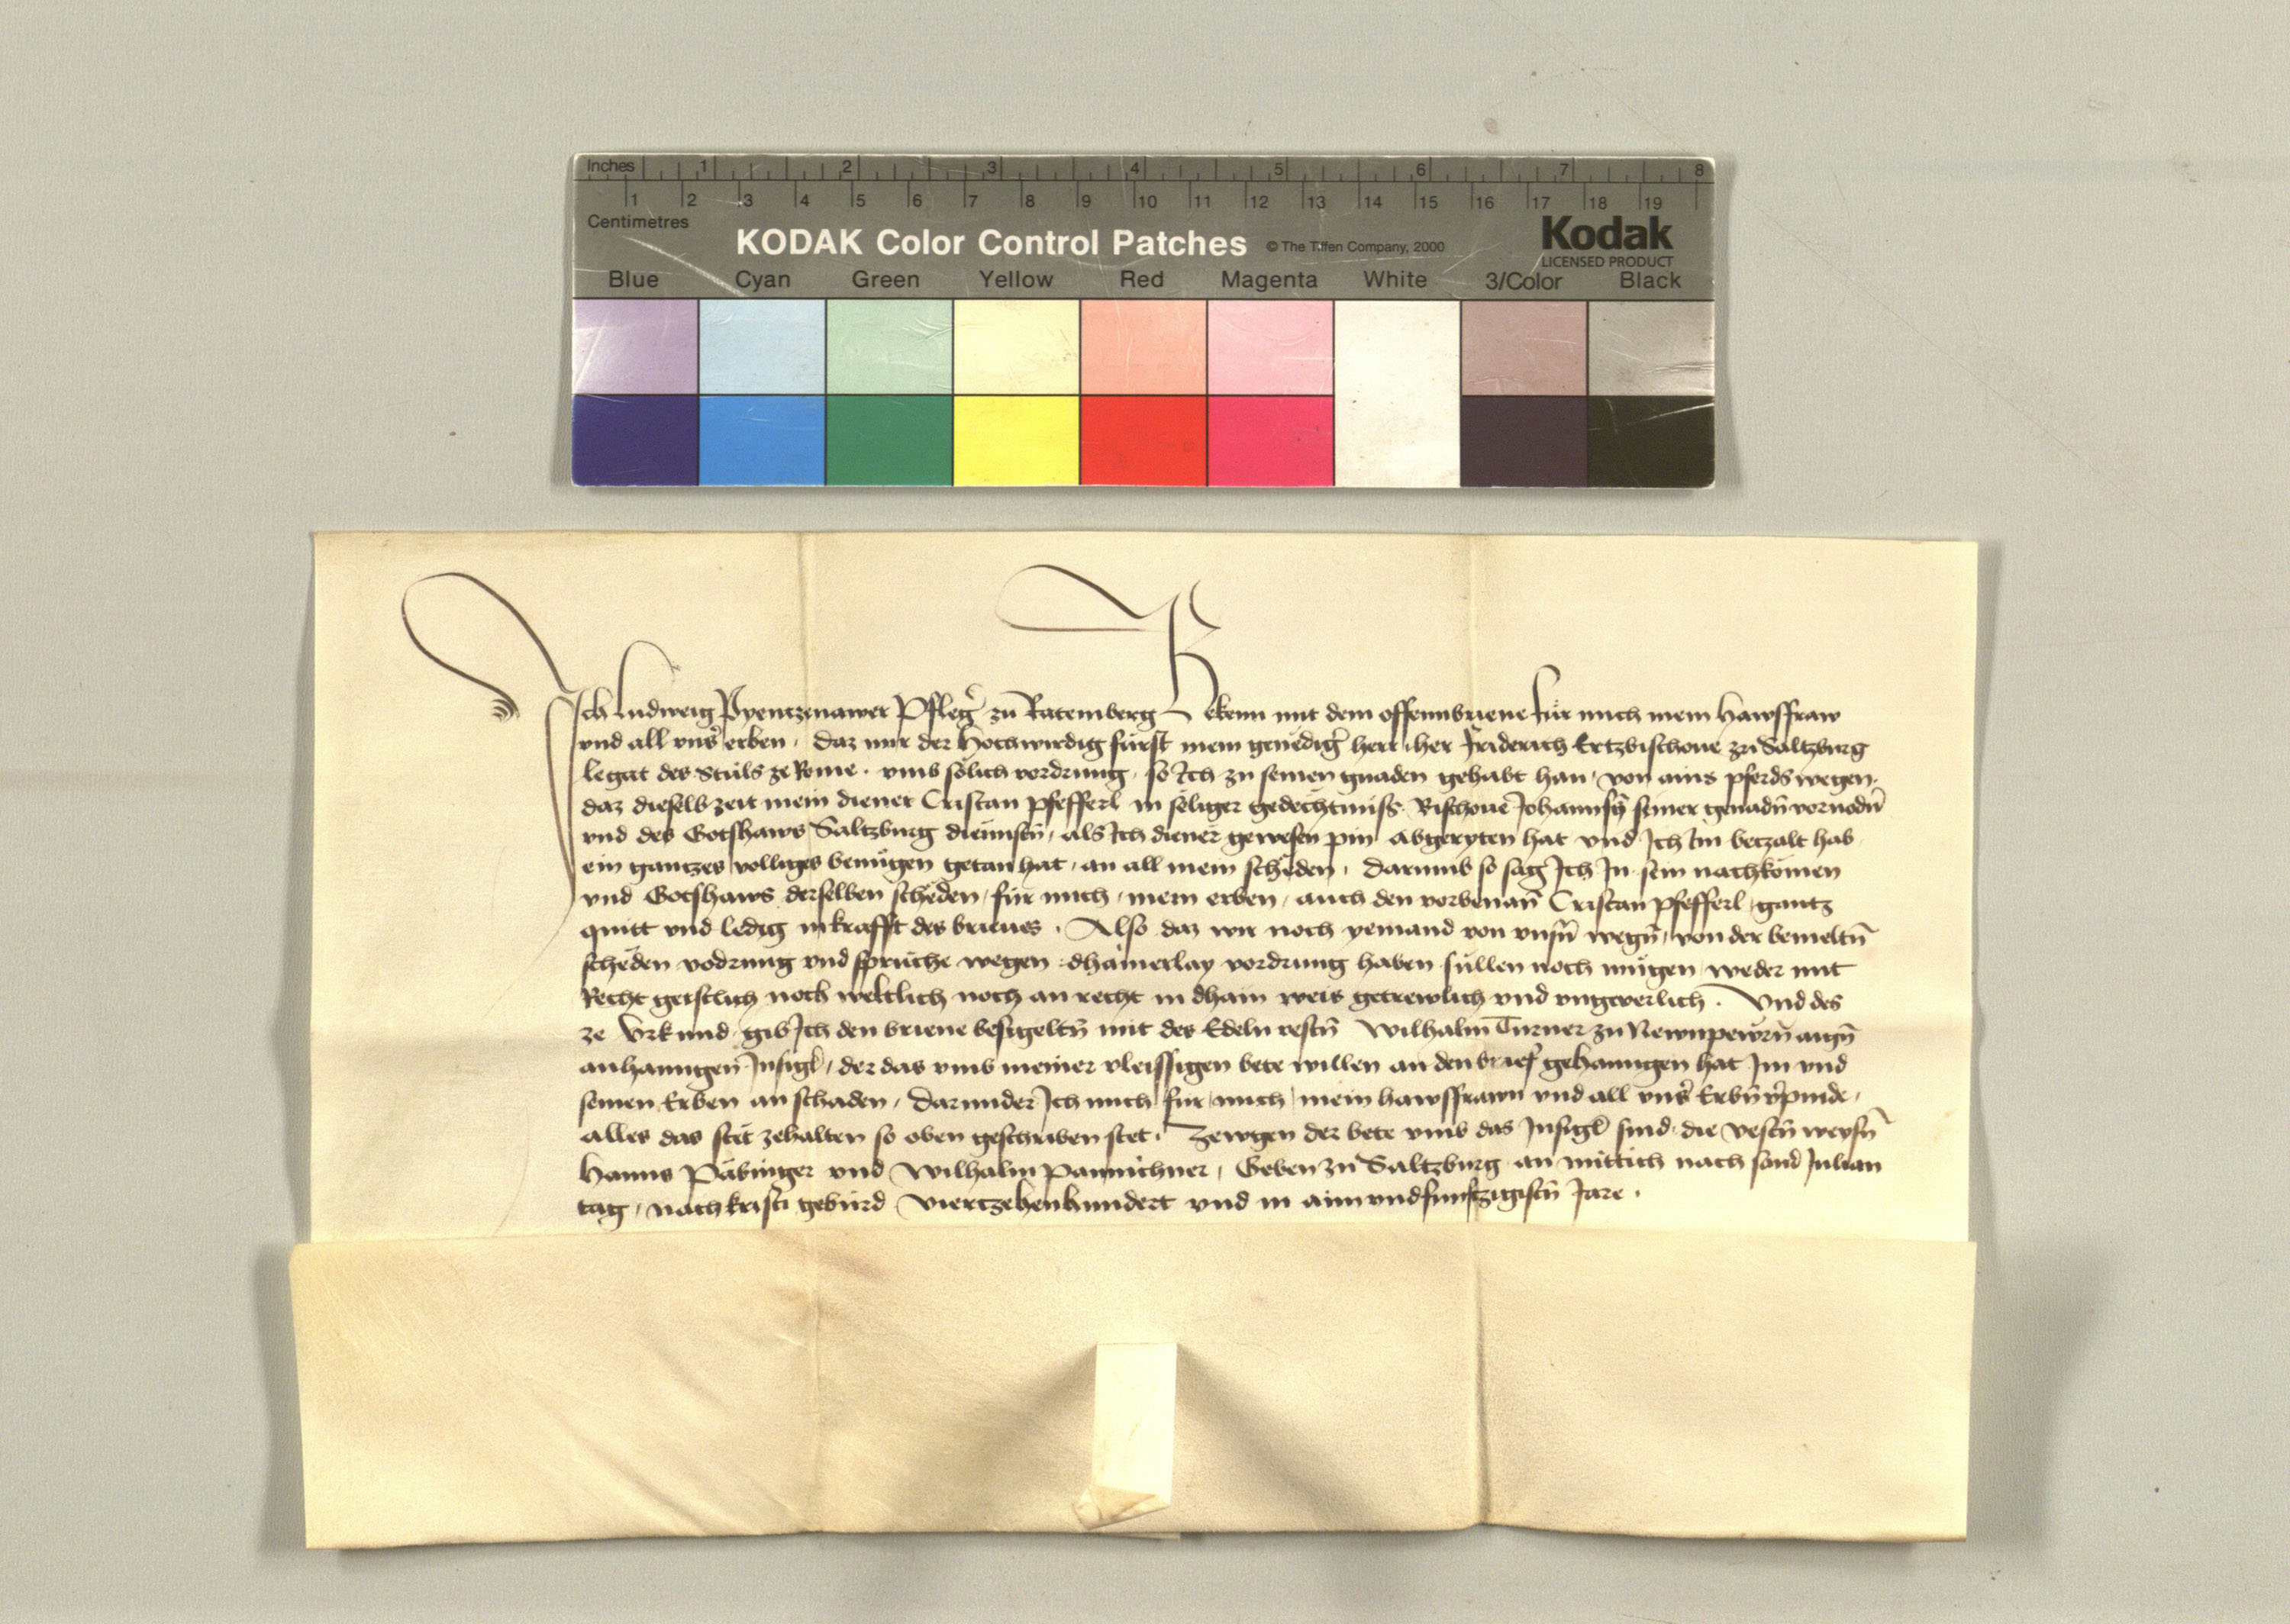 Inches 1 2 3 4 5 6 7 8
1 2 3 4 5 6 7 8 9 10 11 12 13 14 15 16 17 18 19
Centimetres
KODAK Color Control Patches © The Tiffen Company, 2000 Kodak
LICENSED PRODUCT
Blue Cyan Green Yellow Red Magenta White 3/Color Black
Ich Ludweig Pyentzenawer Pfleg̉ zu Ratemberg Bekenn mit dem offennbrieue für mich mein hawsfraw
vnd all vns̉ erben, daz mir der Hochwirdig fürst mein genedig̉ herr her Friderich Ertzbischoue zu Saltzburg
legat des Stuls ze Rome. vmb sölich vordrung, so Ich zu seinen gnaden gehabt han, von ains pferds wegen,
daz dieselb zeit mein diener Cristan Pfefferl in seliger gedechtniss Bischoue Johannsn̄ seiner genadn̄ voruodn̄
vnd des Gotshaws Saltzburg diennstn̄, als Ich diener gewesen pin abgeryten hat vnd Ich Im betzalt hab
ein gantzes volligs benügen getan hat, an all mein scheden, darumb so sag Ich In sein nachkomen
vnd Gotshaws derselben scheden, für mich, mein erben, auch den vorbenan̄ Cristan Pfefferl, gantz
quitt vnd ledig in krafft des brieues. Also daz wir noch yemand von vnsn̄ wegn̄, von der bemeltn̄
scheden vodrung vnd sprüche wegen dhainerlay vordrung haben süllen noch mügen weder mit
Recht geistlich noch weltlich noch an recht in dhain weis getrewlich vnd vngeuerlich. Vnd des
ze Vrkund gib Ich den brieue besigeltn̄ mit des Edeln vestn̄ Wilhalm Turner zu Newnpewrn̄ aign̄
anhanngen Insigl, der das vmb meiner vleissigen bete willen an den brief gehanngen hat Im vnd
seinen Erben an schaden, darunder Ich mich für mich, mein hawsfrawn vnd all vns̉ Erbn̄ v̉pinde,
alles das stet zehalten so oben geschriben stet. Zewgen der bete vmb das Insigl sind die vestn̄ weysn̄
Hanns Päbinger vnd Wilhalm Pannichner, Geben zu Saltzburg an mittich nach sand Julian
tag, nach kristi gebürd Viertzehenhundert vnd in aimvndfunftzigistn̄ Jare.